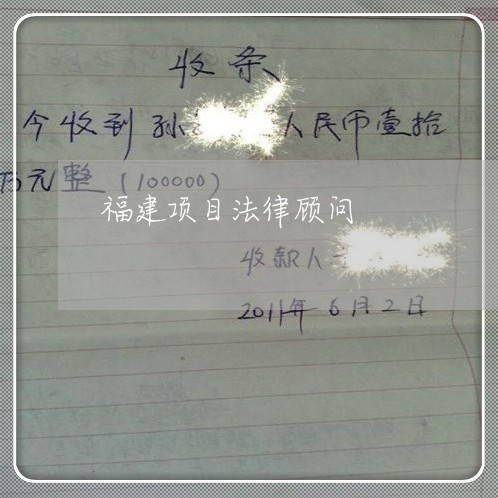 收条
今收到孙 人民币壹拾
万元整(100000)
福建项目法律顾问
收款人
2011年6月2日